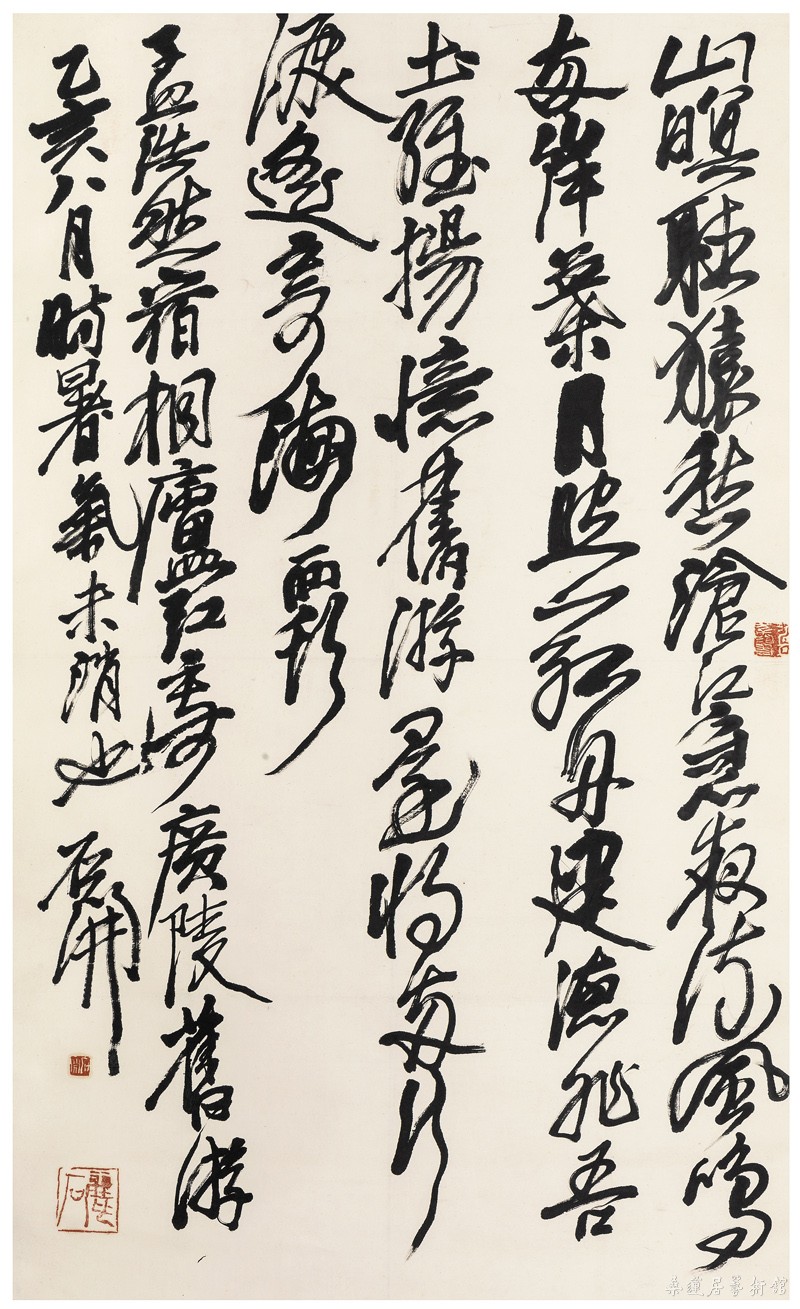 山暝聽猿愁滄江急夜流風鳴
兩岸葉月照一孤舟建德非吾
土維揚憶舊游還將兩行
淚遙寄海西頭
孟浩然宿桐廬江寄廣陵舊游
乙亥八月時暑氣未消也 石開
桑蓮居藝術館